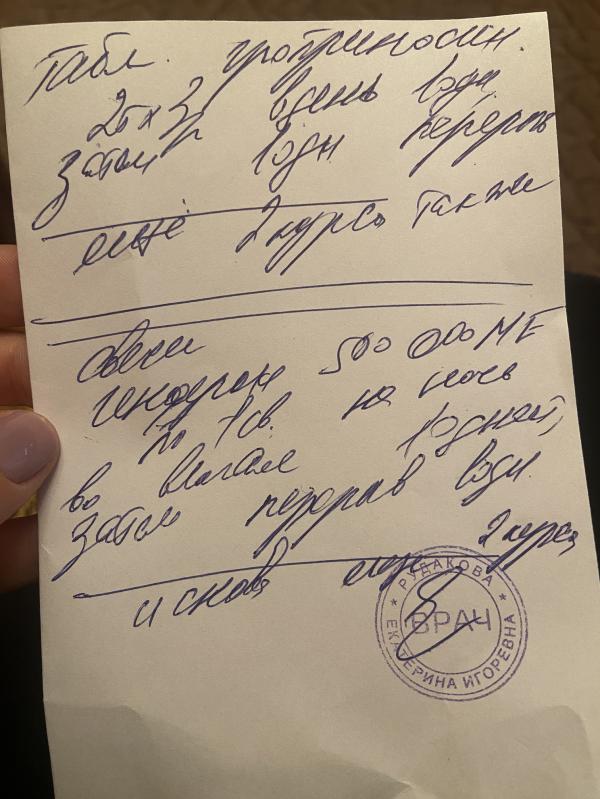 Табл. гроприносин.
2т х 3р в день 10дн,
затем 10дн перерыв
ещё 2 курса также
свечи
генферон 500 000 МЕ
по 1св. на ночь
во влагал 10дней,
затем перерыв 10дн.
и снова еще 2 курса
РУДАКОВА
ВРАЧ
ЕКАТЕРИНА ИГОРЕВНА